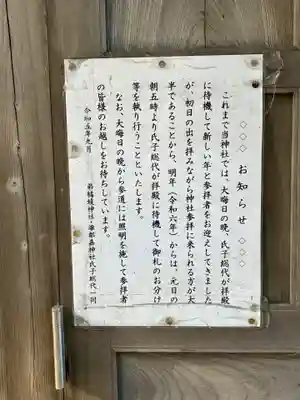 ◇◇◇ お知らせ ◇◇◇
これまで当神社では、大晦日の晩、氏子総代が拝殿
に待機して新しい年と参拝者をお迎えしてきました
が、初日の出を拝みながら神社参拝に来られる方が大
半であることから、明年(令和六年)からは、元日の
朝五時より氏子総代が拝殿に待機して御札のお分け
等を執り行うことといたします。
なお、大晦日の晩から参道には照明を施して参拝者
の皆様のお越しをお待ちしています。
令和五年九月
弟橘媛神社・雅都嘉神社氏子総代一同